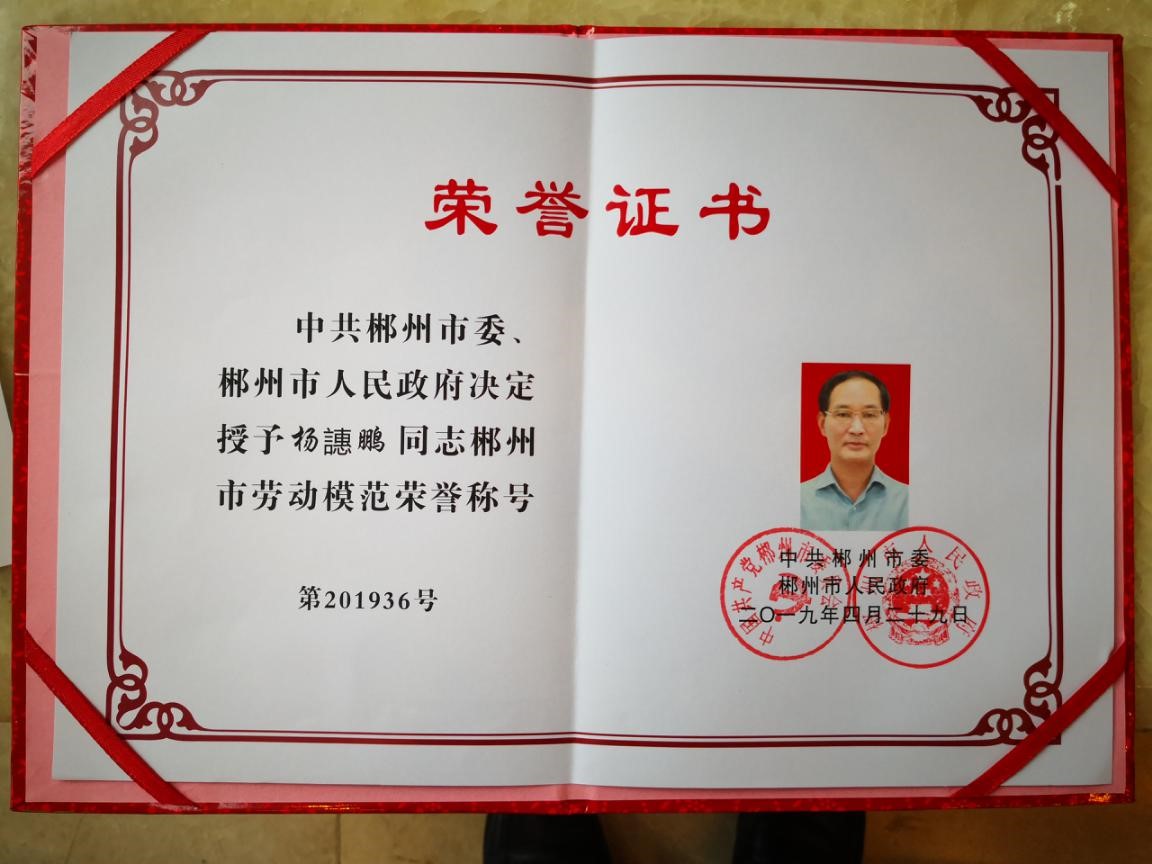 荣誉证书
中共郴州市委、
郴州市人民政府决定
授予杨譓鹏同志郴州
市劳动模范荣誉称号
第201936号
中共郴州市委
郴州市人民政府
二〇一九年四月二十九日
中国共产党郴州市委员会
郴州市人民政府